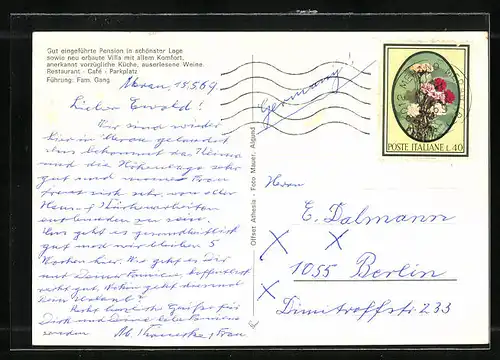 Gut eingeführte Pension in schönster Lage
sowie neu erbaute Villa mit allem Komfort,
anerkannt vorzügliche Küche, auserlesene Weine.
Restaurant - Café - Parkplatz
Führung: Fam. Gang
Meran, 18.5.69
Lieber Ewald!
Wir sind wieder
hier in Meran gelandet
Uns bekommt das Klima
und die Höhenlage sehr
gut und meine Frau
freut sich sehr, von aller
Haus- & Küchenarbeiten
entbunden zu sein.
Uns geht es gesundheitlich
gut und wir bleiben 5
Wochen hier. Wie geht es Dir
und Deiner Familie, hoffentlich
recht gut. Wohin geht diesmal
Dein Urlaub?
Recht herzliche Grüße für
Dich und Deine liebe Familie
senden
Frau
Offset Athesia - Foto Mauer, Algund
Germany
POSTE ITALIANE L. 40
Herrn
E. Dalmann
1055 Berlin
Dimitroffstr. 233